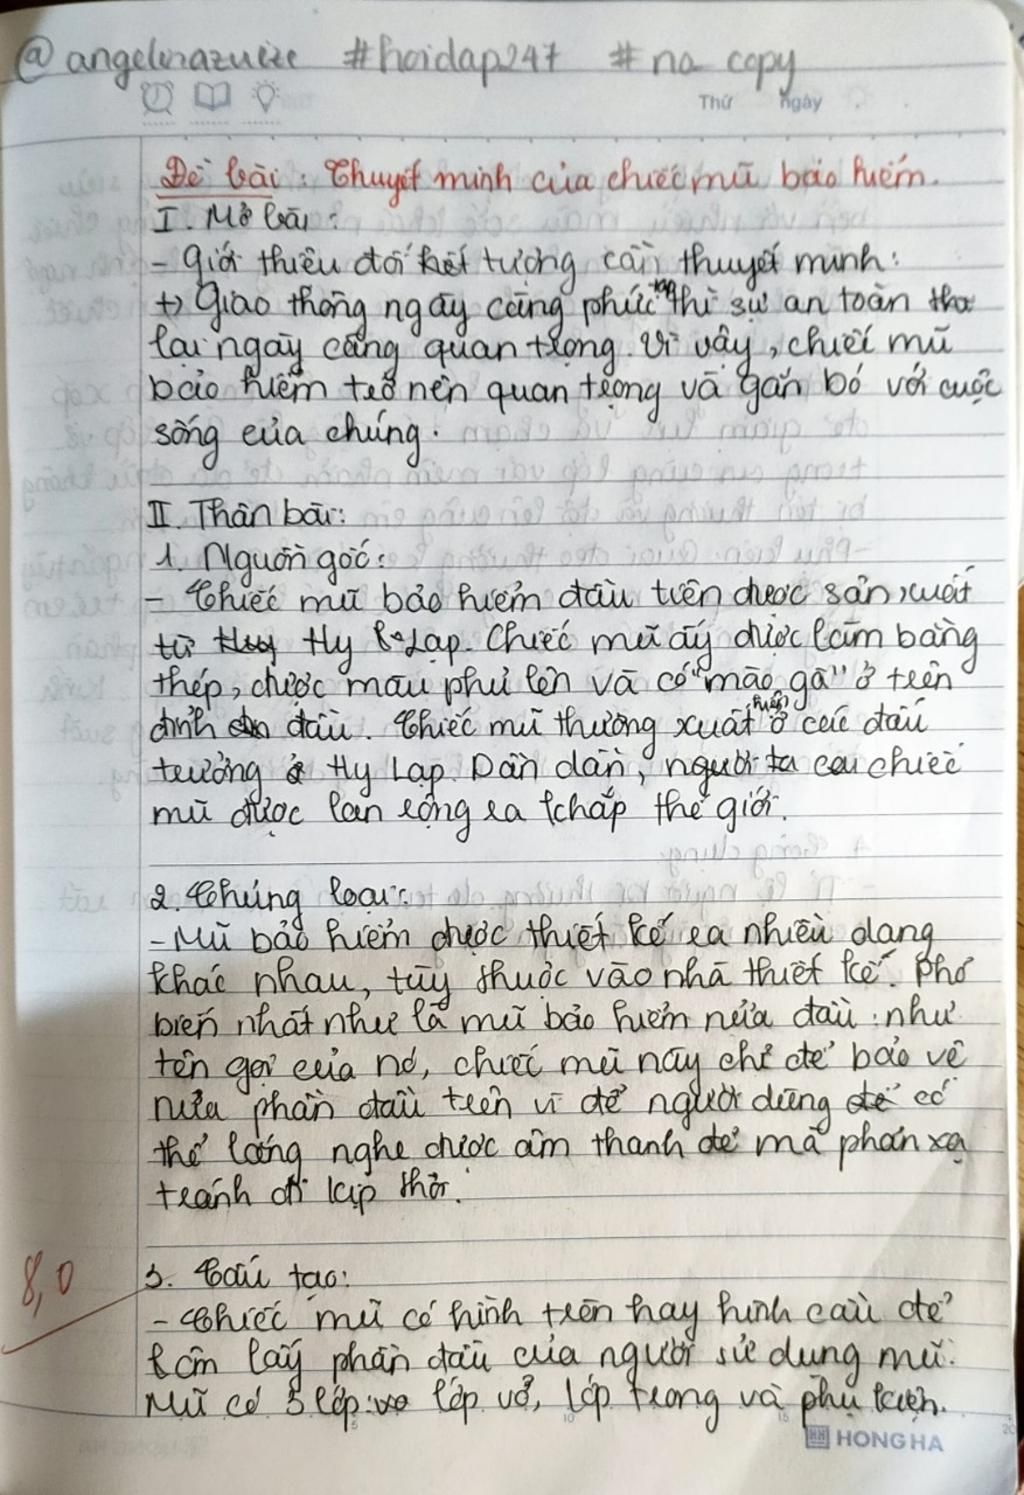 @angelinazuize #hoidap247 #no copy
Thứ ngày
Đề bài: Thuyết minh của chiếc mũ bảo hiểm.
I. Mở bài:
- Giới thiệu đối tượng cần thuyết minh:
+) Giao thông ngày càng phức tạp thì sự an toàn
lại ngày càng quan trọng. Vì vậy, chiếc mũ
bảo hiểm trở nên quan trọng và gắn bó với cuộc
sống của chúng.
II. Thân bài:
1. Nguồn gốc:
- Chiếc mũ bảo hiểm đầu tiên được sản xuất
từ Hy Lạp. Chiếc mũ ấy được làm bằng
thép, được màu phủ lên và có "mào gà" ở trên
đỉnh đầu. Chiếc mũ thường xuất hiện ở các đấu
trường ở Hy Lạp. Dần dần, người ta chiếc
mũ được lan rộng ra khắp thế giới.
2. Chủng loại:
- Mũ bảo hiểm được thiết kế ra nhiều dạng
khác nhau, tùy thuộc vào nhà thiết kế. Phổ
biến nhất như là mũ bảo hiểm nửa đầu: như
tên gọi của nó, chiếc mũ này chỉ để bảo vệ
nửa phần đầu trên vì để người dùng có
thể lắng nghe được âm thanh để mà phản xạ
tránh đi kịp thời.
8,0
3. Cấu tạo:
- Chiếc mũ có hình tròn hay hình cầu để
ôm lấy phần đầu của người sử dụng mũ.
Mũ có 3 lớp: lớp vỏ, lớp trong và phụ kiện.
HONG HA